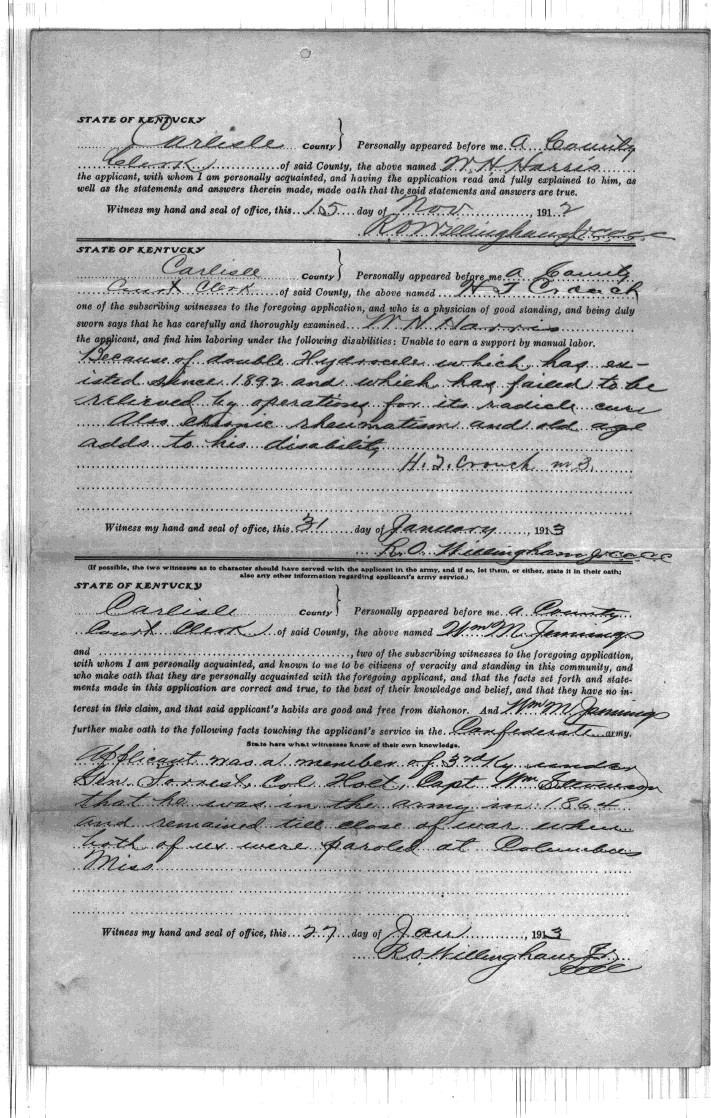 STATE OF KENTUCKY
Carlisle County } Personally appeared before me a County
Clerk, of said County, the above named W. H. Harris
the applicant, with whom I am personally acquainted, and having the application read and fully explained to him, as
well as the statements and answers therein made, made oath that the said statements and answers are true.
Witness my hand and seal of office, this 15 day of Nov 1912
R. O. Willingham Jr
STATE OF KENTUCKY
Carlisle County } Personally appeared before me a County
Court Clerk of said County, the above named H T Crouch
one of the subscribing witnesses to the foregoing application, and who is a physician of good standing, and being duly
sworn says that he has carefully and thoroughly examined W H Harris
the applicant, and find him laboring under the following disabilities: Unable to earn a support by manual labor.
Because of double Hydrocele which has ex-
isted since 1892 and which has failed to be
relieved by operations for its radicle cure
Also chronic rheumatism and old age
adds to his disability
H. T. Crouch
Witness my hand and seal of office, this 31 day of January, 1913
R. O. Willingham Jr
(If possible, the two witnesses as to character should have served with the applicant in the army, and if so, let them, or either, state it in their oath;
also any other information regarding applicant's army service.)
STATE OF KENTUCKY
Carlisle County } Personally appeared before me a County
Court Clerk, of said County, the above named Wm M. Jennings
and , two of the subscribing witnesses to the foregoing application,
with whom I am personally acquainted, and known to me to be citizens of veracity and standing in this community, and
who make oath that they are personally acquainted with the foregoing applicant, and that the facts set forth and state-
ments made in this application are correct and true, to the best of their knowledge and belief, and that they have no in-
terest in this claim, and that said applicant's habits are good and free from dishonor. And Wm M. Jennings
further make oath to the following facts touching the applicant's service in the Confederate army.
State here what witnesses know of their own knowledge.
Applicant was a member of 3rd Ky under
Gen Forrest, Col Holt, Capt Wm
that he was in the army in 1864
and remained till close of war when
both of us were paroled at Columbus
Miss
Witness my hand and seal of office, this 27 day of Jan, 1913
R. O. Willingham Jr.